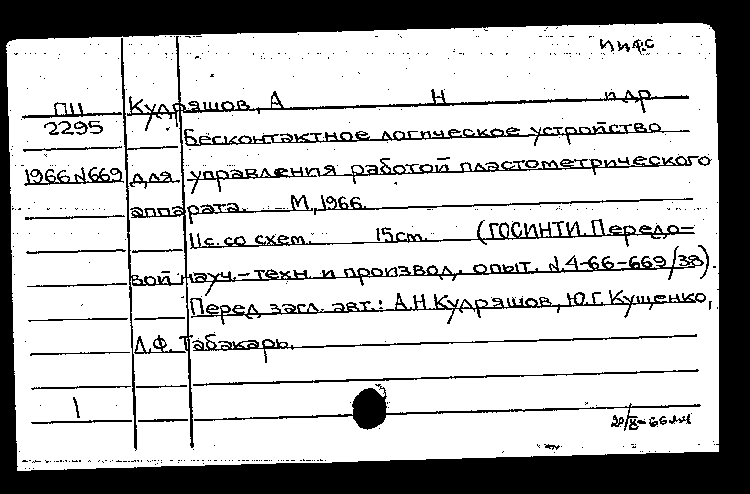 ПИФС
ПЦ Кудряшов, А Н и др
2295
Бесконтактное логическое устройство
1966 N669 для управления работой пластометрического
аппарата. М, 1966.
11с. со схем. 15см. (ГОСИНТИ. Передо=
вой науч.-техн. и производ. опыт. N.4-66-669/38).
Перед загл. авт.: А.Н. Кудряшов, Ю.Г. Кущенко,
Д.Ф. Табакарь.
1